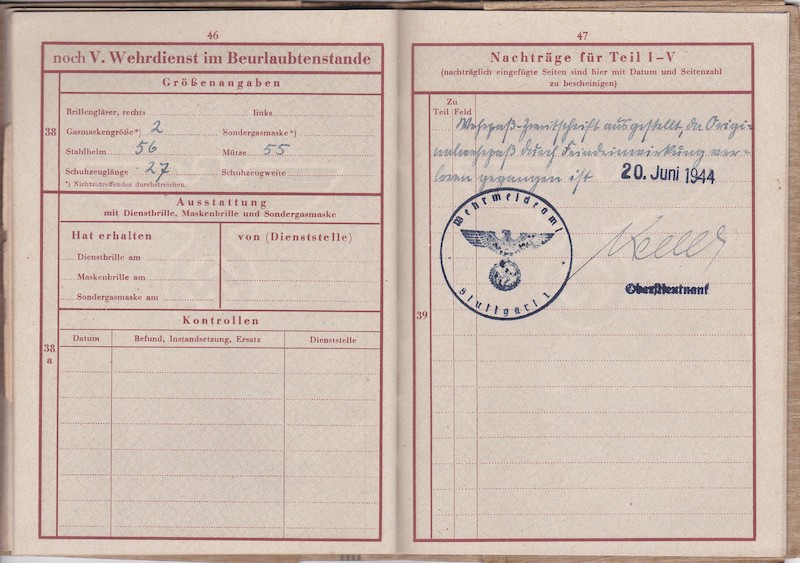 46
noch V. Wehrdienst im Beurlaubtenstande
Größenangaben
38
Brillengläser, rechts links
Gasmaskengröße*) 2 Sondergasmaske*)
Stahlhelm 56 Mütze 55
Schuhzeuglänge 27 Schuhzeugweite
*) Nichtzutreffendes durchstreichen.
Ausstattung
mit Dienstbrille, Maskenbrille und Sondergasmaske
Hat erhalten von (Dienststelle)
Dienstbrille am
Maskenbrille am
Sondergasmaske am
Kontrollen
38
a
Datum Befund, Instandsetzung, Ersatz Dienststelle
47
Nachträge für Teil I–V
(nachträglich eingefügte Seiten sind hier mit Datum und Seitenzahl
zu bescheinigen)
Zu
Teil Feld
Wehrpaß-Zweitschrift ausgestellt, da Origi-
nalwehrpaß durch Feindeinwirkung ver-
loren gegangen ist 20. Juni 1944
Wehrmeldeamt
Stuttgart 1
Oberstleutnant
39